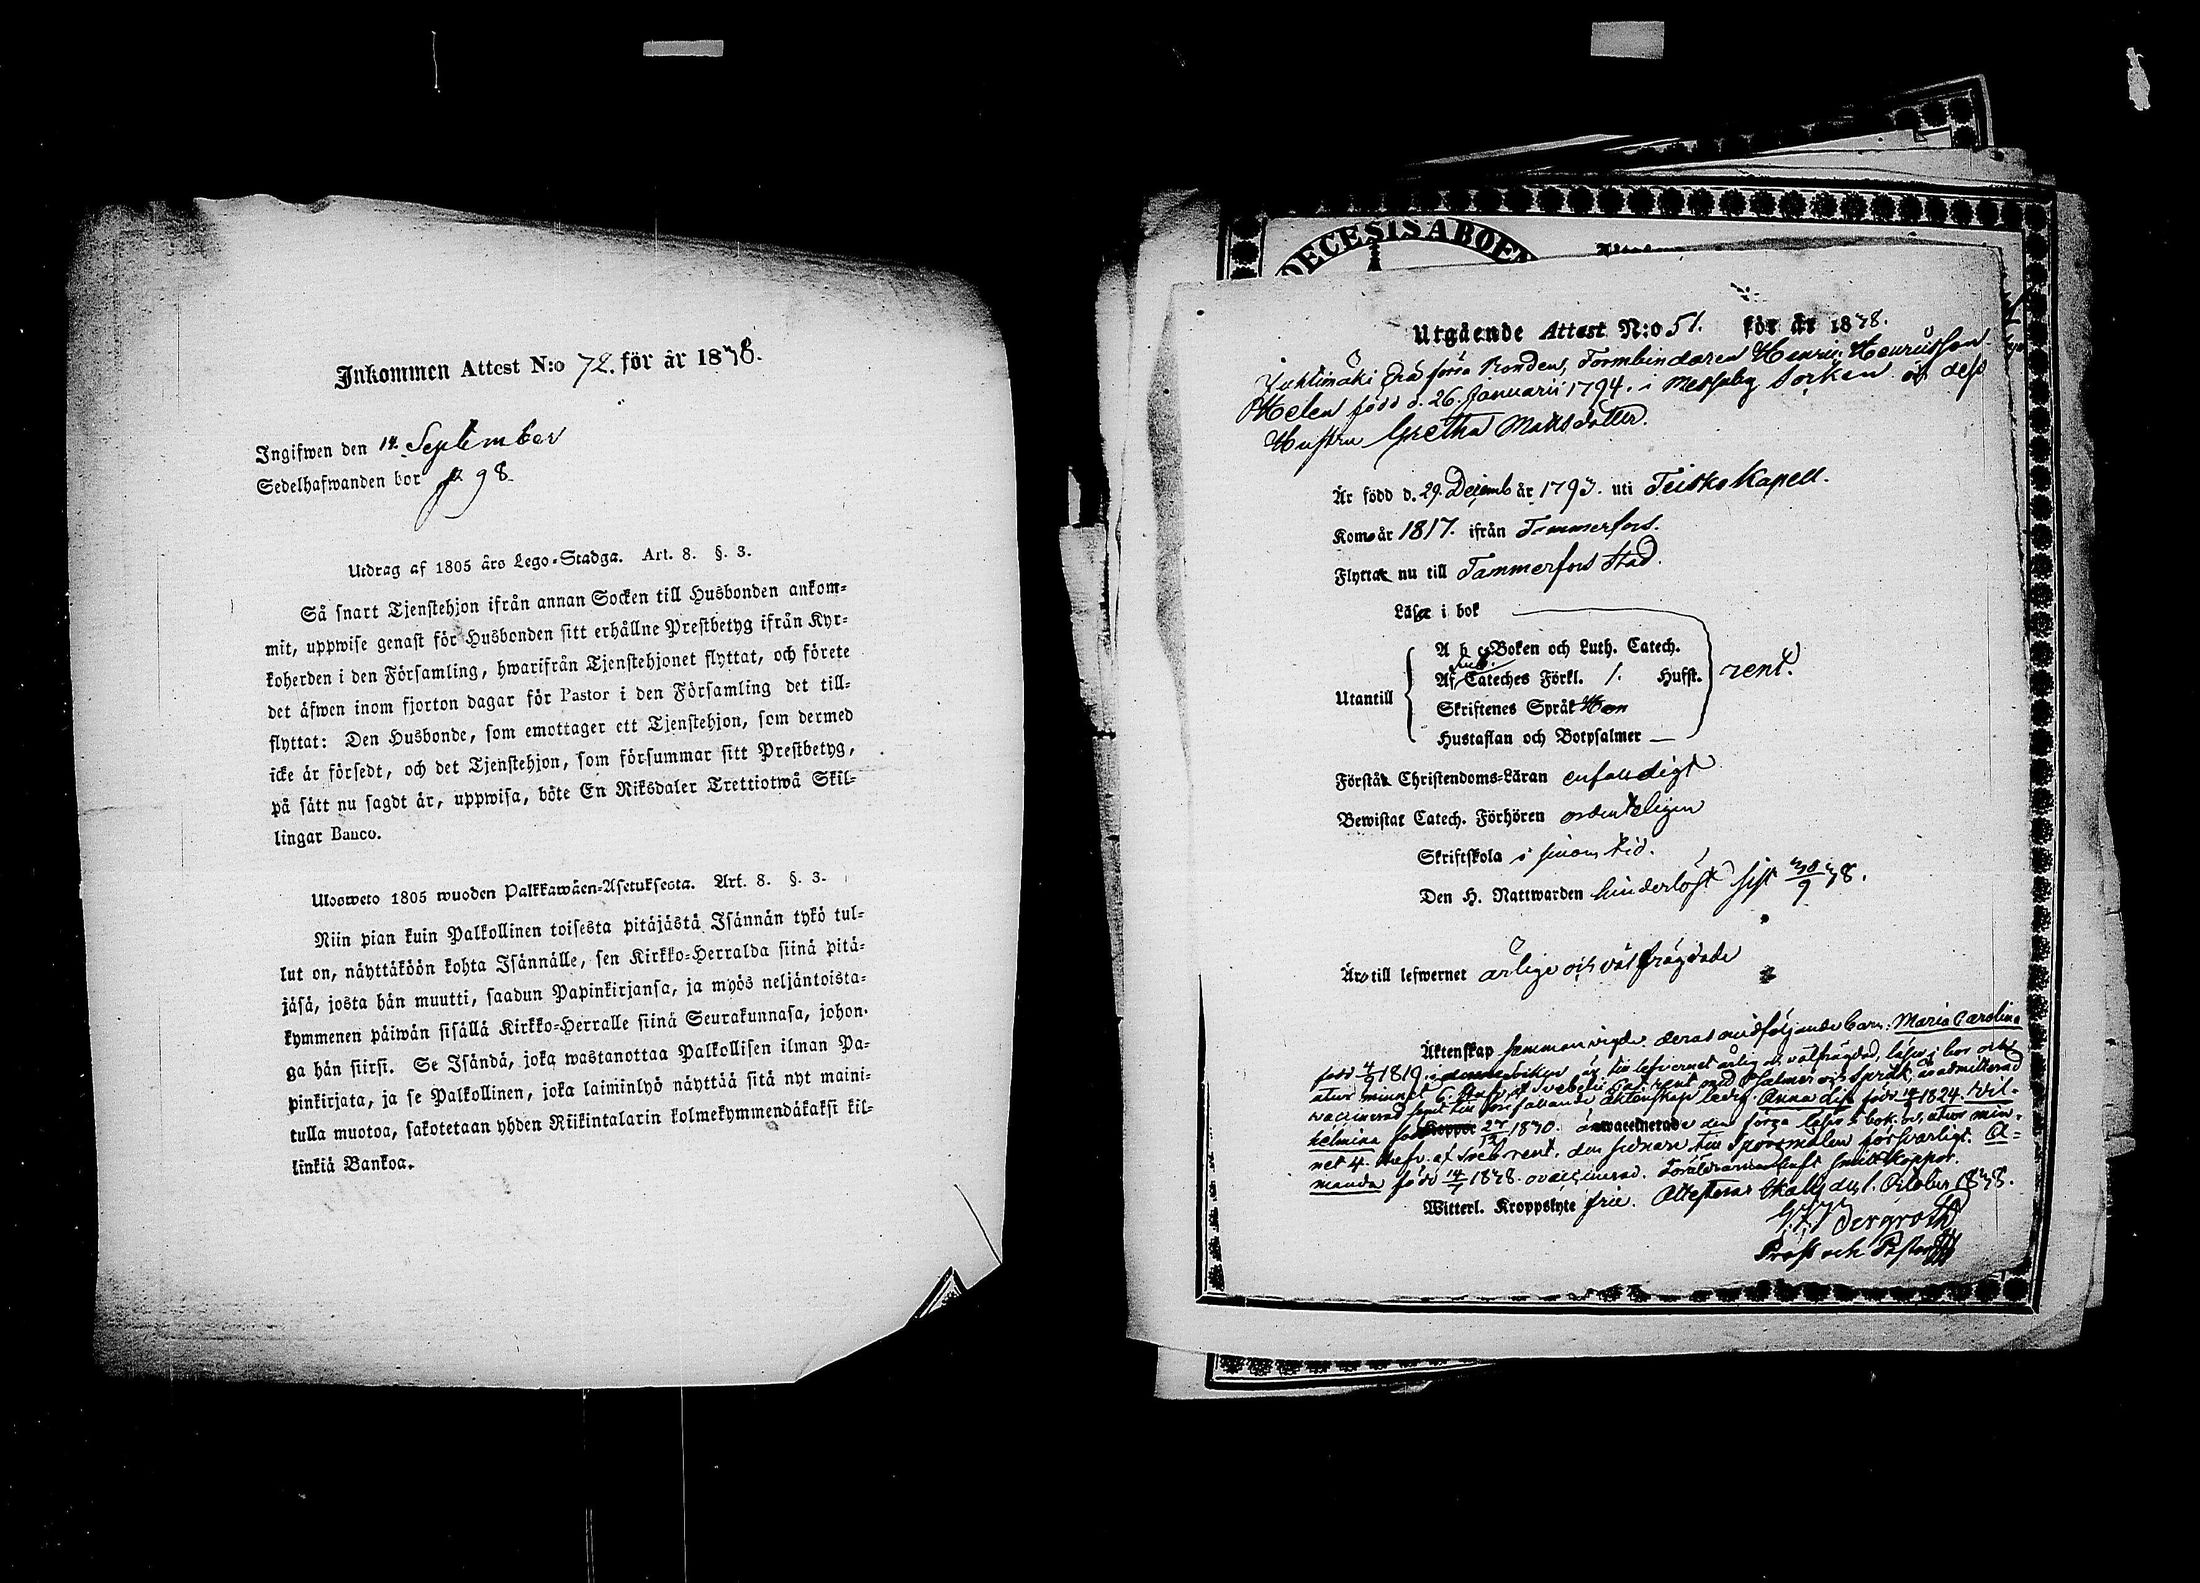 Inkommen Attest N:o 72. för år 1838.
Ingifwen den 14. September
Sedelhafwanden bor p 98.
Utdrag af 1805 års Lego-Stadga. Art. 8. §. 3.
Så snart Tjenstehjon ifrån annan Socken till Husbonden ankom-
mit, uppwise genast för Husbonden sitt erhållne Prestbetyg ifrån Kyr-
koherden i den Församling, hwarifrån Tjenstehjonet flyttat, och förete
det äfwen inom fjorton dagar för Pastor i den Församling det till-
flyttat: Den Husbonde, som emottager ett Tjenstehjon, som dermed
icke är försedt, och det Tjenstehjon, som försummar sitt Prestbetyg,
på sätt nu sagdt är, uppwisa, böte En Riksdaler Trettiotwå Skil-
lingar Banco.
Ulosweto 1805 wuoden Palkkawäen-Asetuksesta. Art. 8. §. 3.
Niin pian kuin Palkollinen toisesta pitäjästä Isännän tykö tul-
lut on, näyttäköön kohta Isännälle, sen Kirkko-Herralda siinä pitä-
jäsä, josta hän muutti, saadun Papinkirjansa, ja myös neljäntoista-
kymmenen päiwän sisällä Kirkko-Herralle siinä Seurakunnasa, johon-
ga hän siirsi. Se Isändä, joka wastanottaa Palkollisen ilman Pa-
pinkirjata, ja se Palkollinen, joka laiminlyö näyttää sitä nyt maini-
tulla muotoa, sakotetaan yhden Riikintalarin kolmekymmendäkaksi kil-
linkiä Bankoa.
DECESIS ABOEN
Utgående Attest N:o 51. för år 1838.
Juhtimäki Formbindaren Henric Henricsson
Helen född d. 26. Januarii 1794. i Messuby Socken och dess
Hustru Gretha Matsdotter.
Är född d. 29. Decemb år 1793. uti Teisko Kapell.
Kom år 1817. ifrån Tammerfors.
Flyttar nu till Tammerfors Stad.
Läser i bok
Utantill
A b c-Boken och Luth. Catech.
Af Cateches Förkl. 1. Hufst. rent.
Skriftenes Språk
Hustaflan och Botpsalmer
Förstår Christendoms-Läran enfaldigt
Bewistat Catech. Förhören ordenteligen
Skriftskola i sinom tid.
Den H. Nattwarden hinderlöst sist 30/9 38.
Äro till lefwernet ärlige och välfrägdade
Äktenskap sammanvigde. deras medföljande barn: Maria Carolina
född 1819 är till lefvernet ärlig och välfrägdad, läser i bok och
utur minnet 6. rent med Psalmer och Språk, är admitterad
vaccinerad samt till äktenskap ledig. Anna Lis född 1824. Wil-
helmina född 27/12 1830. den förra läser i bok och utur min-
net 4. Hufv. af Sveb rent. den sednare till Sporsmålen försvarligt. A-
manda född 14/7 1838. ovaccinerad. Föräldrarne haft Smittkoppor.
Witterl. Kroppslyte frie. Attesterar d. 1. October 1838.
Bergroth
Prost och Pastor